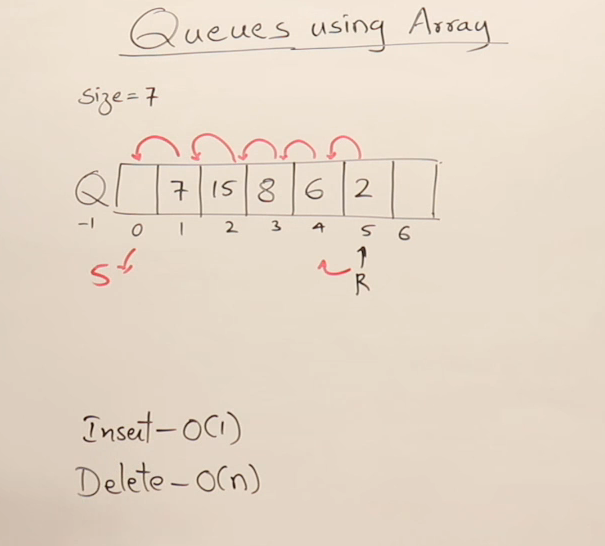 Queues using Array
Size=7
Q 7 15 8 6 2
-1 0 1 2 3 4 5 6
5
R
Insert-O(1)
Delete-O(n)